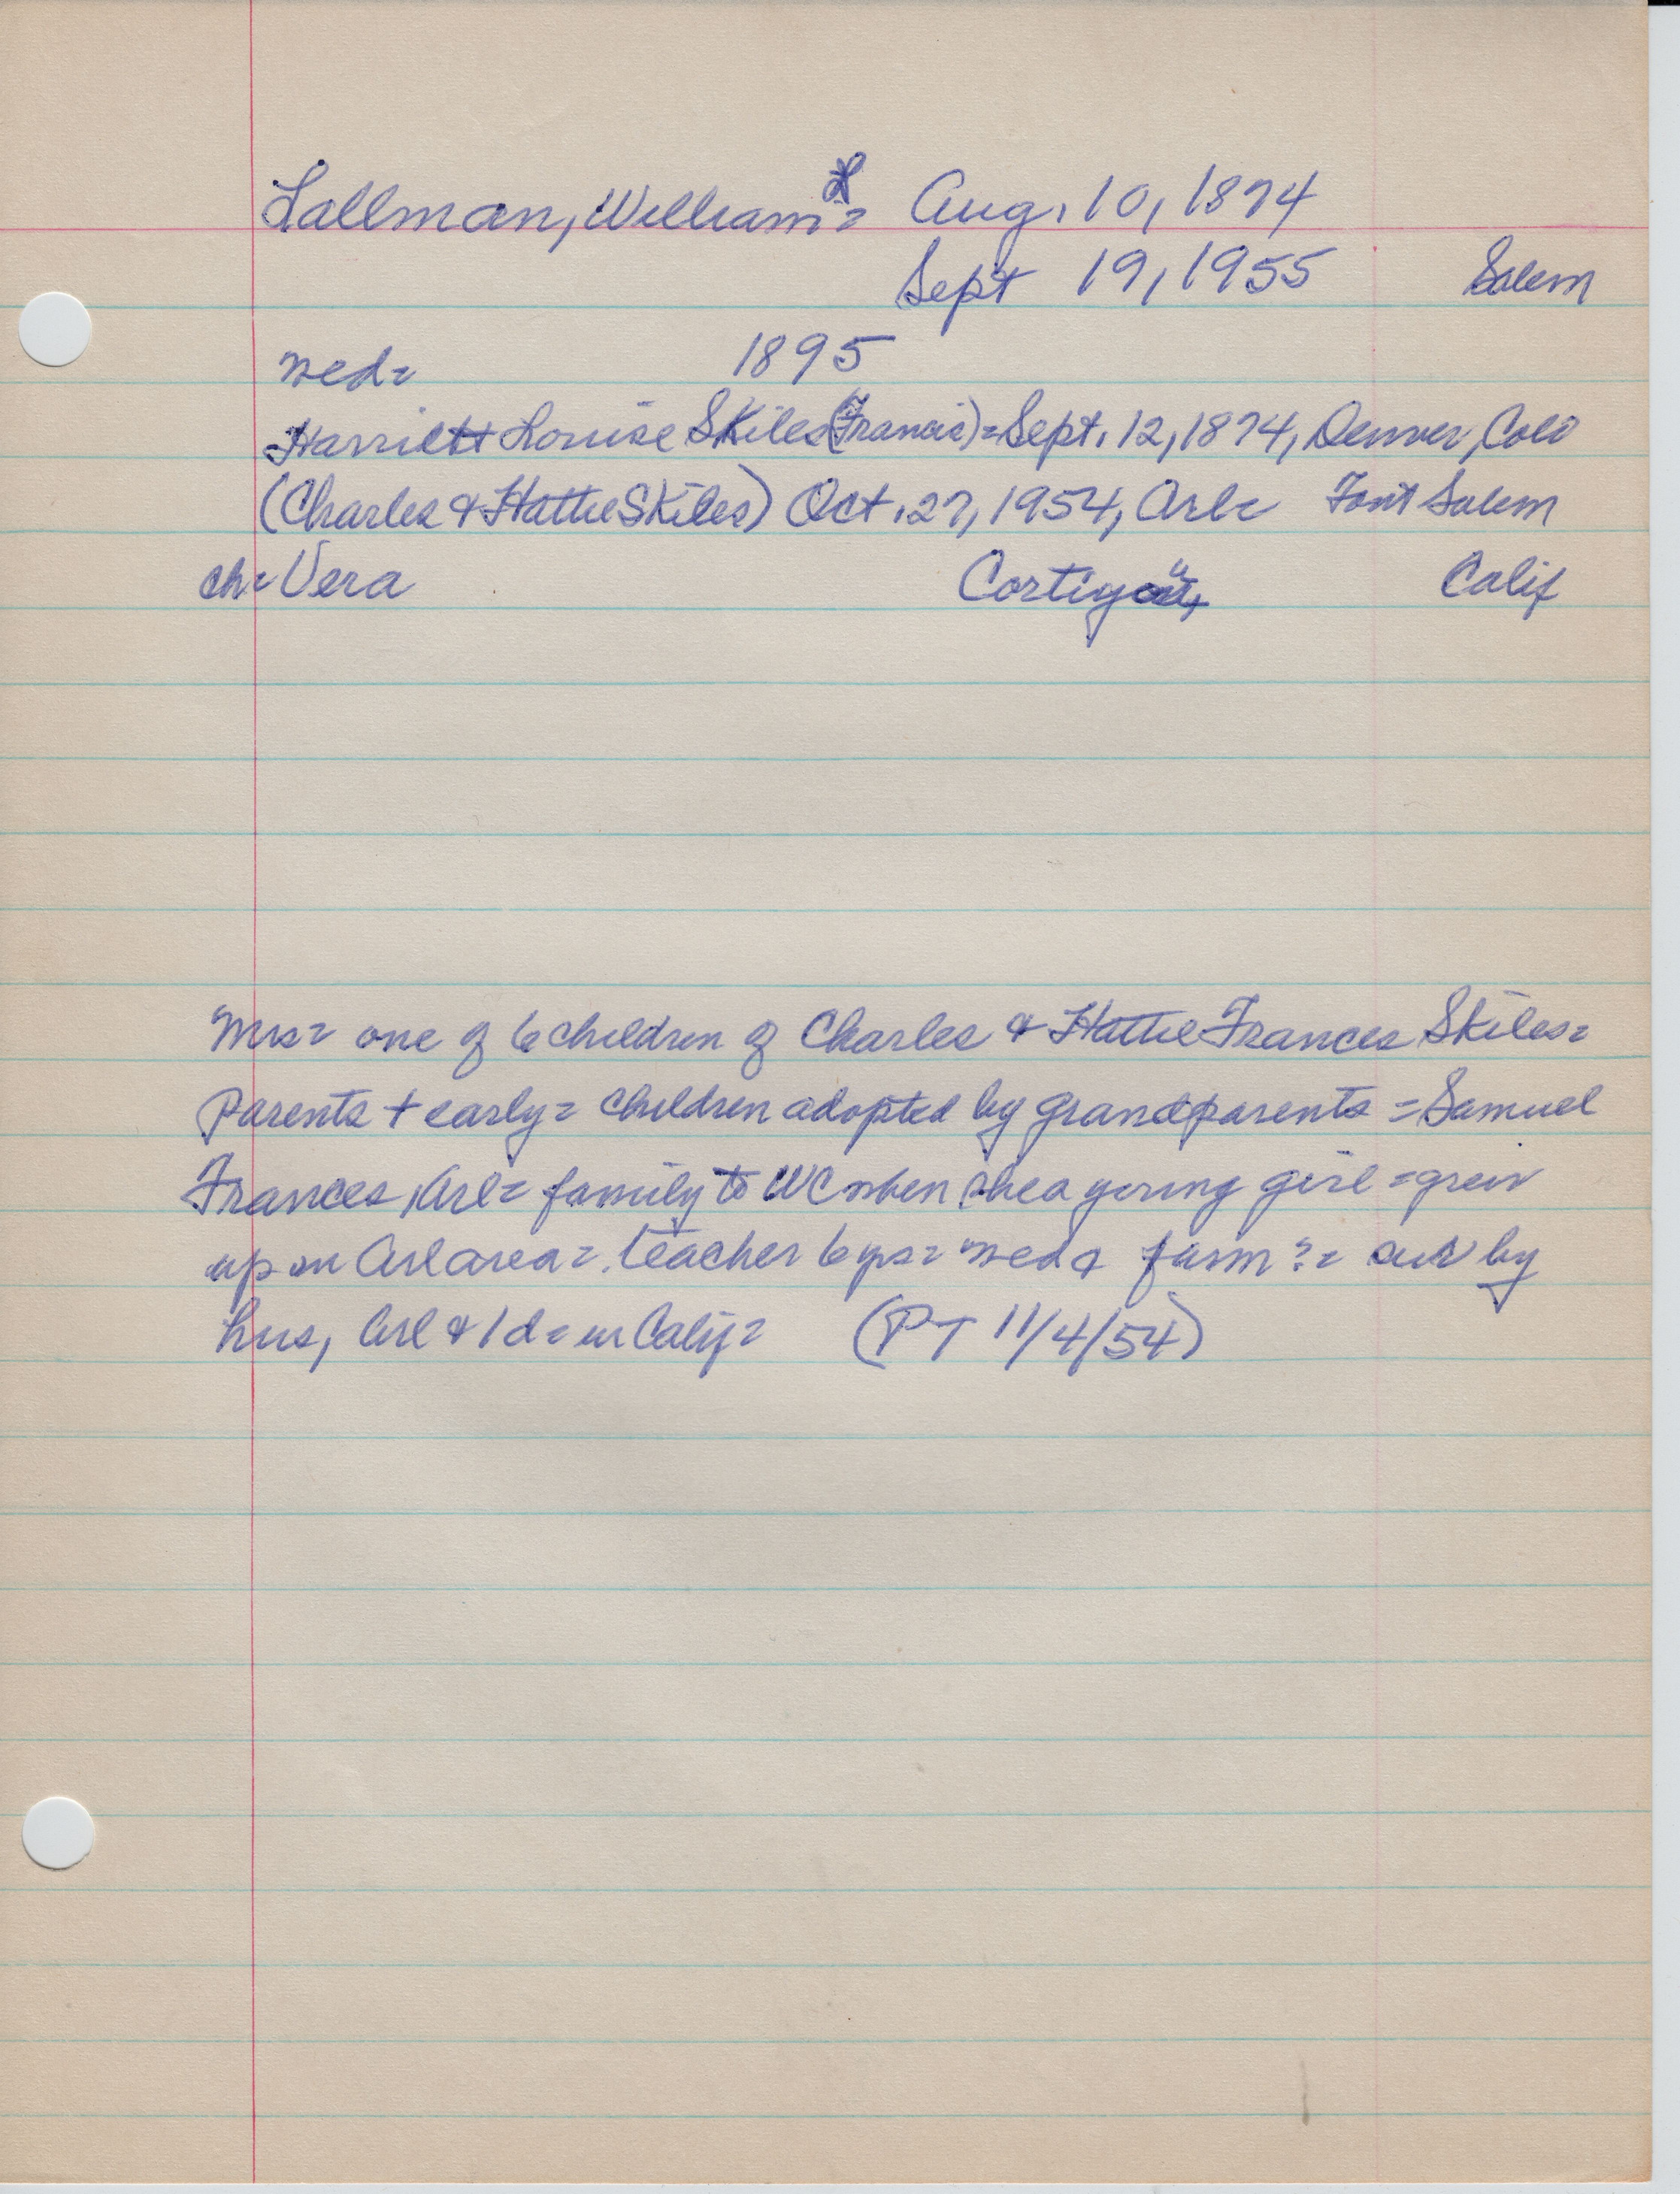 Lallman, William H = Aug. 10, 1874
Sept 19, 1955 Salem
wed = 1895
Harriett Louise Skiles (Francis) = Sept. 12, 1874, Denver, Colo
(Charles & Hattie Skiles) Oct. 27, 1954, Arl = Font Salem
ch = Vera Calif
Mrs = one of 6 children of Charles & Hattie Frances Skiles =
Parents + early = children adopted by grandparents = Samuel
Frances, Arl = family to WC when she a young girl = grew
up in Arl area = teacher 6 yrs = wed & farm ? = sur by
hus, Arl & 1 d = in Calif = (PT 11/4/54)